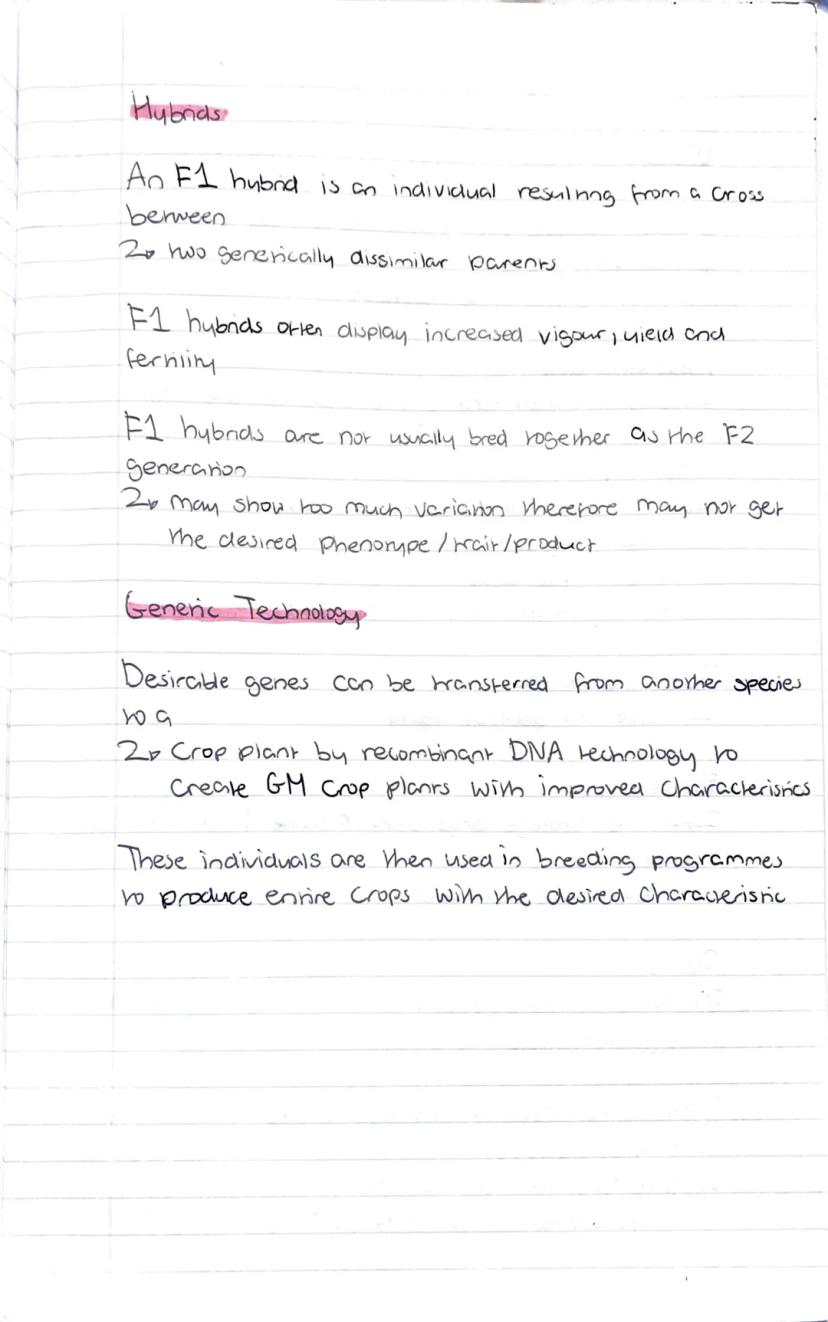 Hybrids
An F1 hybrid is an individual resulting from a cross
between
↳ two genetically dissimilar parents
F1 hybrids often display increased vigour, yield and
fertility
F1 hybrids are not usually bred together as the F2
generation
↳ may show too much variation therefore may not get
the desired phenotype/trait/product
Genetic Technology
Desirable genes can be transferred from another species
to a
↳ Crop plant by recombinant DNA technology to
create GM crop plants with improved characteristics
These individuals are then used in breeding programmes
to produce entire crops with the desired characteristic